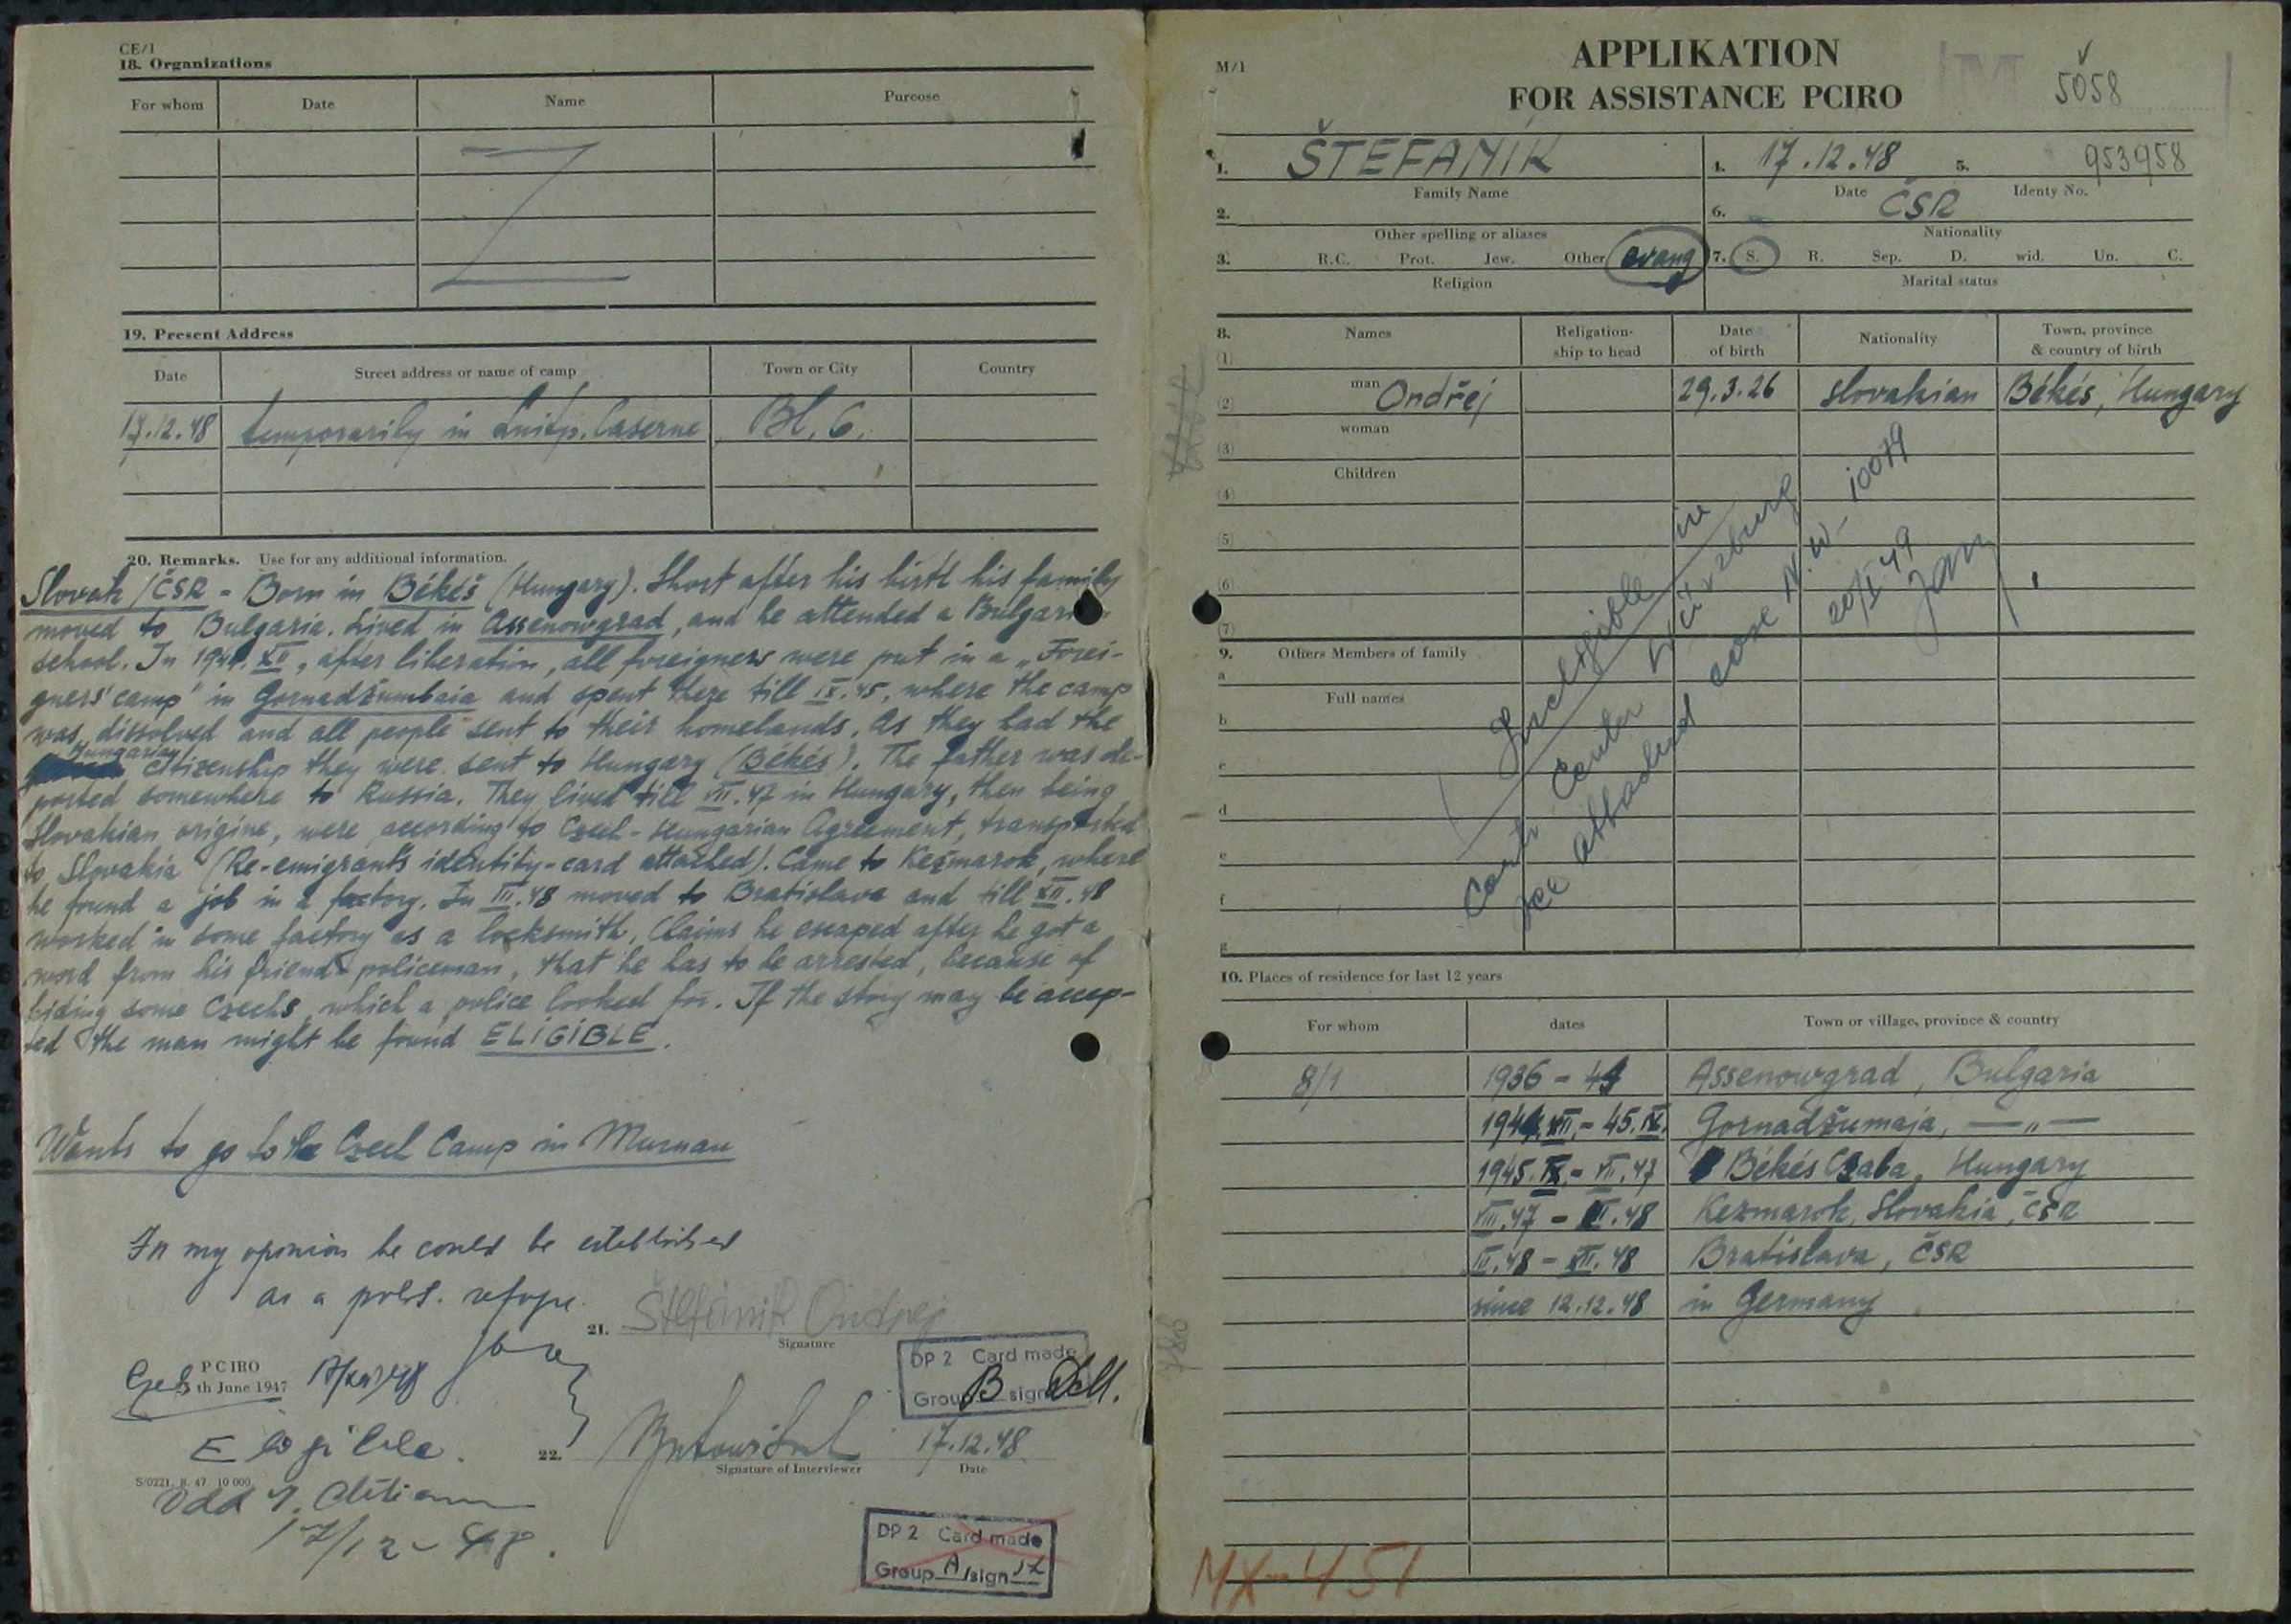 CE/1
18. Organizations
For whom Date Name Purcose
19. Present Address
Date Street address or name of camp Town or City Country
17.12.48 temporarily in Luitp. Caserne Bl. 6.
20. Remarks. Use for any additional information.
Slovak /ČSR - Born in Békéš (Hungary). Short after his birth his family
moved to Bulgaria. Lived in Assenowgrad, and he attended a Bulgarian
school. In 1944.XII, after liberation, all foreigners were put in a „Forei-
gners' camp" in Gornadžumbaia and spent there till IX.45, where the camp
was dissolved and all people sent to their homelands. As they had the
Hungarian citizenship they were sent to Hungary (Békés). The father was de-
ported somewhere to Russia. They lived till VII.47 in Hungary, then being
Slovakian origine, were according to Czech-Hungarian Agreement, transported
to Slovakia (Re-emigrant's identity-card attached). Came to Kežmarok, where
he found a job in a factory. In III.48 moved to Bratislava and till XII.48
worked in some factory as a locksmith. Claims he escaped after he got a
word from his friend policeman, that he has to be arrested, because of
hiding some Czechs, which a police looked for. If the story may be accep-
ted the man might be found ELIGIBLE.
Wants to go to the Czech Camp in Murnau
In my opinion he could be established
as a polit. refugee.
21. Štefánik Ondrej
Signature
PCIRO
th June 1947
Czech
17/XII/48
DP 2 Card made
Group B sign
Eligible.
22. 17.12.48
Signature of Interviewer Date
S/0221. 8. 47. 10 000
17/12-48.
DP 2 Card made
Group A sign
M/1
APPLIKATION
FOR ASSISTANCE PCIRO
M
5058
1. ŠTEFANIK 4. 17.12.48 5. 953958
Family Name Date Identy No.
2. 6. ČSR
Other spelling or aliases Nationality
3. R.C. Prot. Jew. Other evang 7. S. R. Sep. D. wid. Un. C.
Religion Marital status
8. Names Religation-ship to head Date of birth Nationality Town, province & country of birth
(1)
man Ondřej 29.3.26 Slovakian Békés, Hungary
(2)
woman
(3)
Children
(4)
(5)
(6)
(7)
9. Others Members of family
a
Full names
b
c
d
e
f
g
Ineligible in
Contr Center Würzburg
see attached case N.W- 10079
20/I 49
10. Places of residence for last 12 years
For whom dates Town or village, province & country
8/1 1936 - 44 Assenowgrad, Bulgaria
1944.XII. - 45.IX. Gornadžumaja, —„—
1945.IX - VII.47 Békés Csaba, Hungary
VIII.47 - III.48 Kezmarok, Slovakia, ČSR
III.48 - XII.48 Bratislava, ČSR
since 12.12.48 in Germany
MX-451